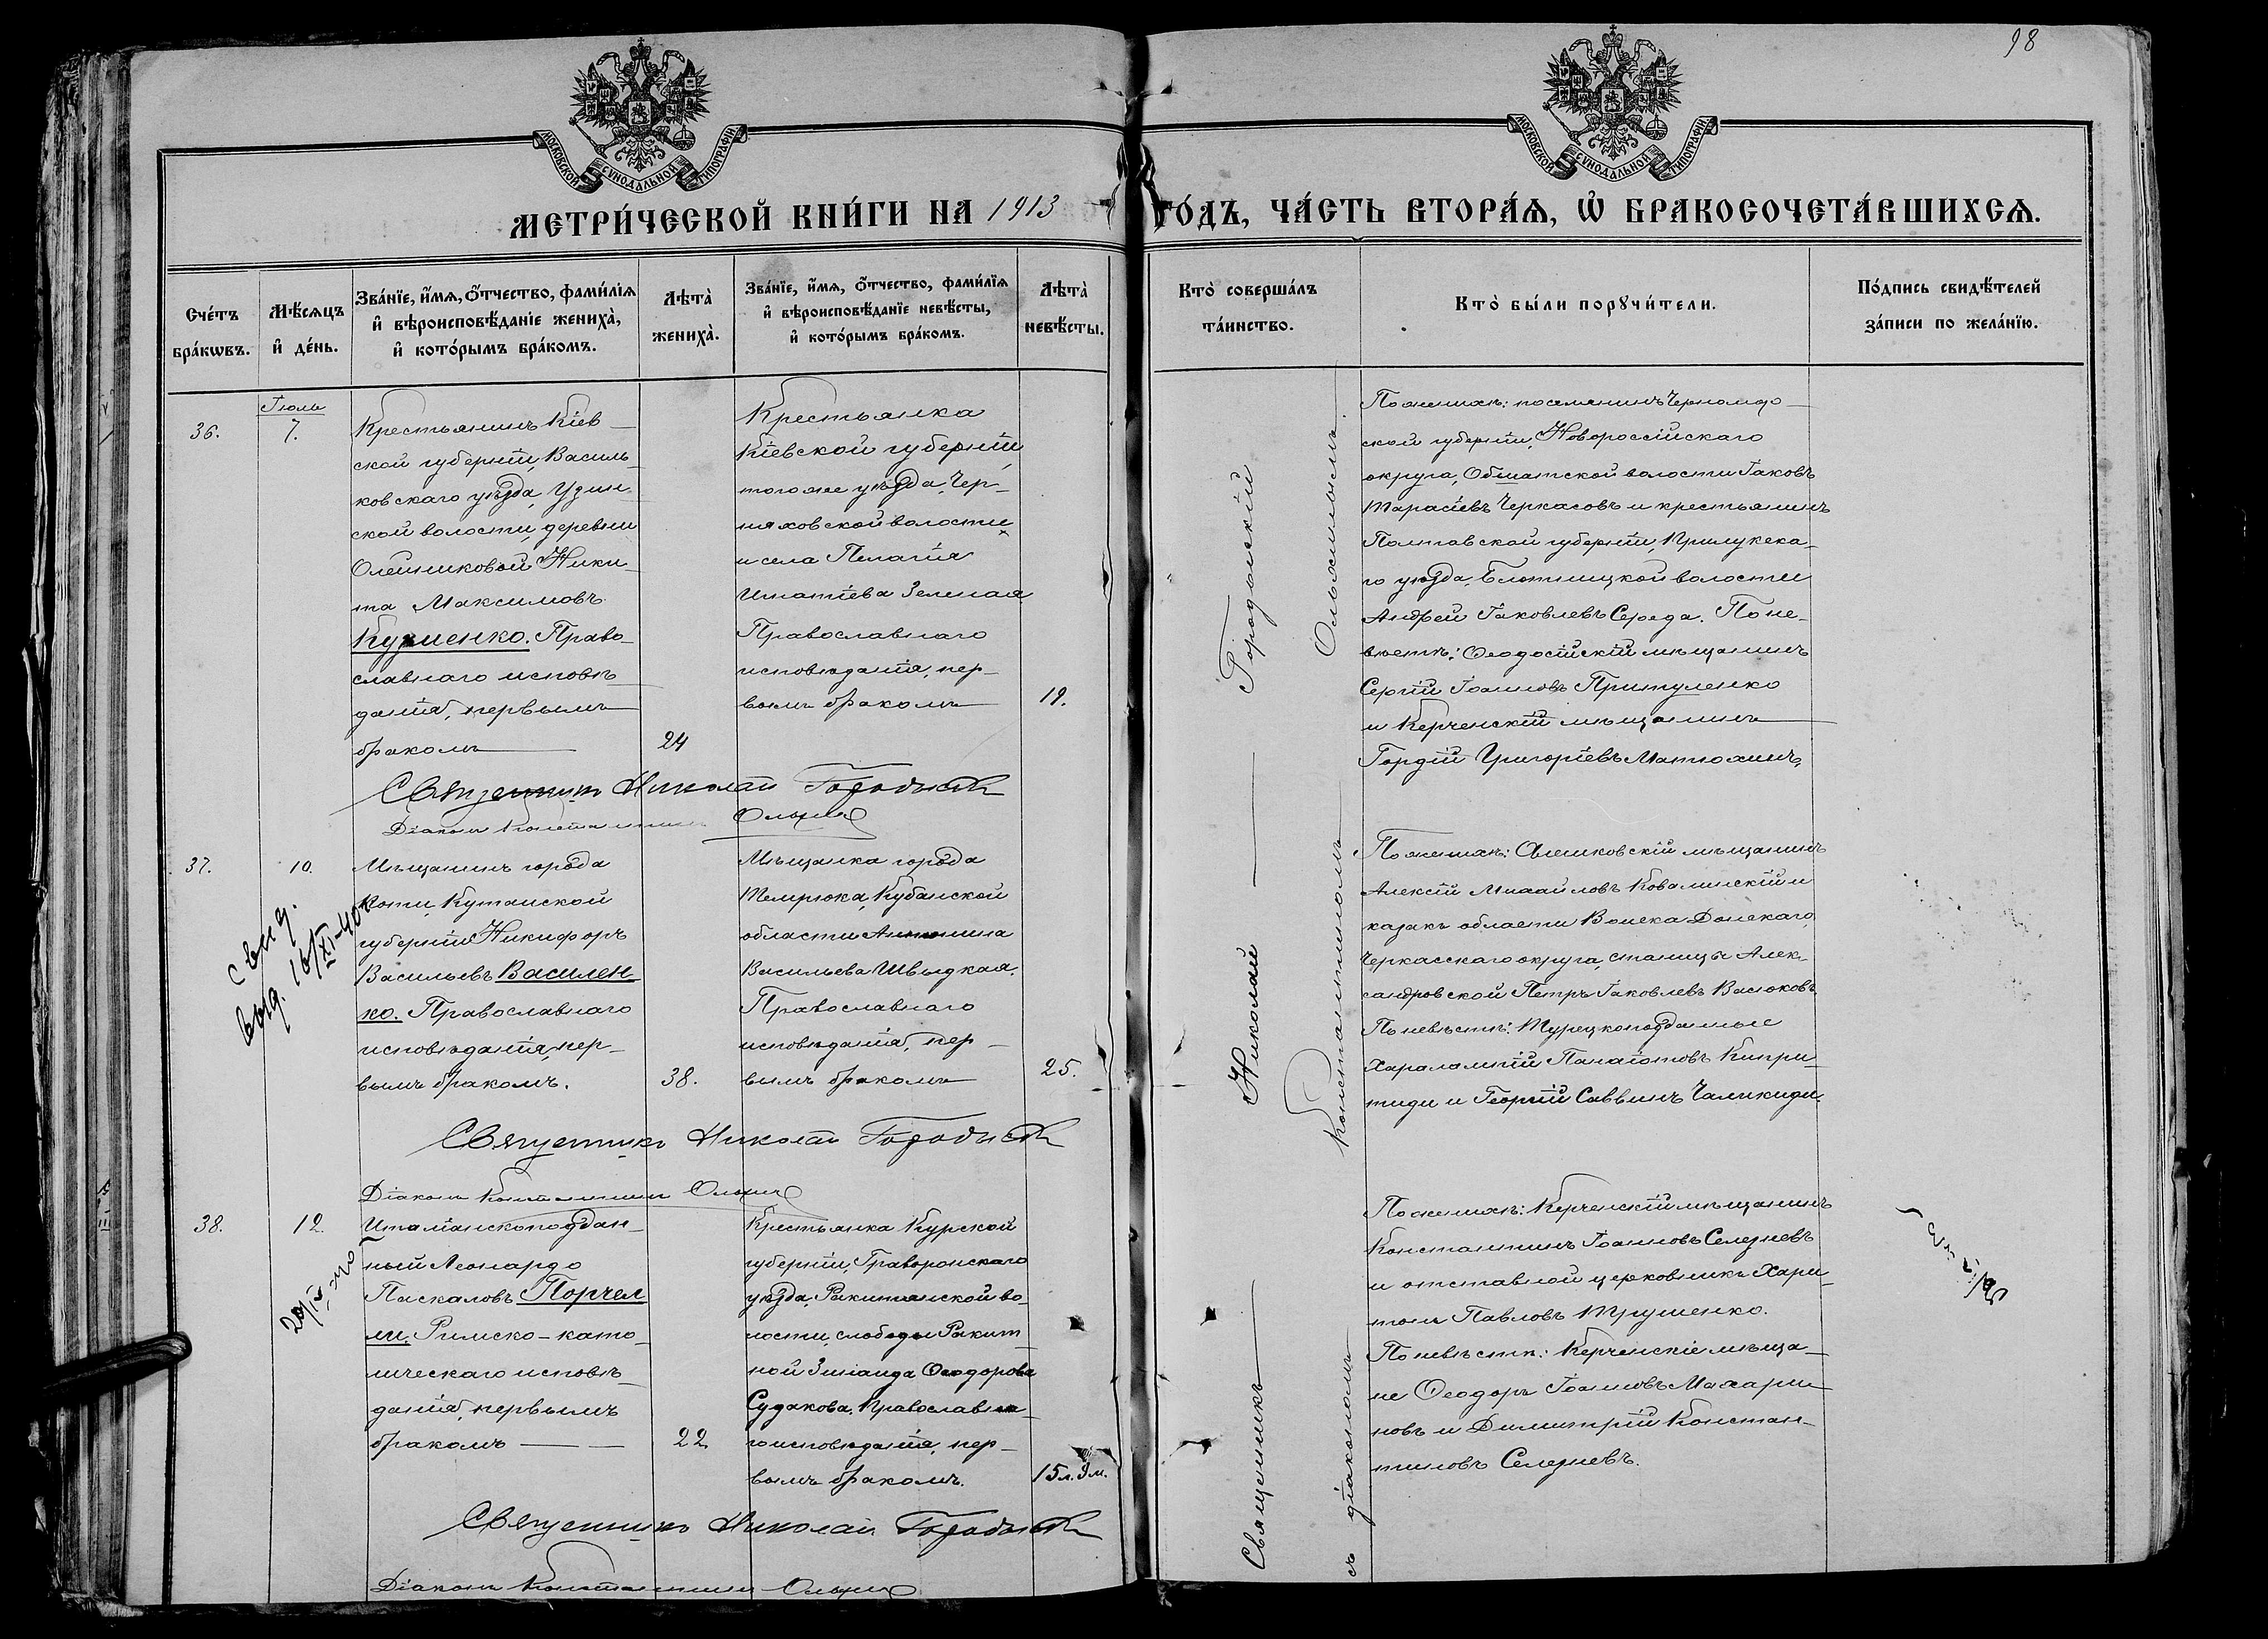 98
МОСКОВСКОЙ СѴНОДАЛЬНОЙ ТИПОГРАФІИ
МОСКОВСКОЙ СѴНОДАЛЬНОЙ ТИПОГРАФІИ
МЕТРИ́ЧЕСКОЙ КНИ́ГИ НА 1913 ГО́ДЪ, ЧА́СТЬ ВТОРА́Я, Ѡ БРАКОСОЧЕТА́ВШИХСЯ.
Сче́тъ бра́кѡвъ.
Мѣ́сяцъ и де́нь.
Зва́нїе, и́мя, ѻ́тчество, фами́лїя и вѣроисповѣ́данїе жениха̀, и кото́рымъ бра́комъ.
Лѣта̀ жениха̀.
Зва́нїе, и́мя, ѻ́тчество, фами́лїя и вѣроисповѣ́данїе невѣ́сты, и кото́рымъ бра́комъ.
Лѣта̀ невѣ́сты.
Кто̀ соверша́лъ та́инство.
Кто̀ бы́ли порꙋчи́тели.
По́дпись свидѣ́телей за́писи по жела́нїю.
36.
Іюль
7.
Крестьянинъ Кіев
ской губерніи, Василь
ковскаго уѣзда, Узин
ской волости, деревни
Олейниковой Ники
та Максимовъ
Кузменко. Право
славнаго исповѣ
данія, первымъ
бракомъ
24
Крестьянка
Кіевской губерніи,
того же уѣзда, Чер
няховской волости
и села Пелагія
Игнатіева Зеленая
Православнаго
исповѣданія, пер
вымъ бракомъ
19.
По женихѣ: поселянинъ Черномор
ской губерніи, Новороссійскаго
округа, волости Іаковъ
Тарасіевъ Черкасовъ и крестьянинъ
Полтавской губерніи, Прилукска
го уѣзда, волости
Андрей Іаковлевъ Середа. По не
вѣстѣ: Ѳеодосійскій мѣщанинъ
Сергій Іоанновъ Притуленко
и Керченскій мѣщанинъ
Гордій Григоріевъ Матюхинъ.
Священникъ Николай Городыскій
Діаконъ Константинъ
37.
10.
Мѣщанинъ города
Поти, Кутаиской
губерніи Никифоръ
Васильевъ Василен
ко. Православнаго
исповѣданія, пер
вымъ бракомъ.
38.
Мѣщанка города
Темрюка, Кубанской
области Антонина
Васильева Швыдкая.
Православнаго
исповѣданія, пер
вымъ бракомъ
25.
По женихѣ: Алешковскій мѣщанинъ
Алексій Михайловъ Ковалинскій и
казакъ области Войска Донскаго,
Черкасскаго округа, станицы Алек
сандровской Петръ Іаковлевъ Васюковъ.
По невѣстѣ: Турецкоподданные
Харалампій Панаіотовъ Кипри
тиди и Георгій Саввинъ Чаликиди.
свид.
выд. 16/XI-40
Священникъ Николай Городыскій
Діаконъ Константинъ
38.
12.
Италіанскоподдан
ный Леонардо
Паскаловъ Порчел
ли, Римско-като
лическаго исповѣ
данія, первымъ
бракомъ
22
Крестьянка Курской
губерніи, Грайворонскаго
уѣзда, Ракитянской во
лости, слободы Ракит
ной Зинаида Ѳеодорова
Судакова, Православна
го исповѣданія, пер
вымъ бракомъ.
15 л. 9 м.
По женихѣ: Керченскій мѣщанинъ
Константинъ Іоанновъ Селезневъ
и отставной церковникъ Хари
тонъ Павловъ Трушенко.
По невѣстѣ: Керченскіе мѣща
не Ѳеодоръ Іоанновъ Махари
новъ и Димитрій Констан
тиновъ Селезневъ.
Священникъ Николай Городыскій
Діаконъ Константинъ
Священникъ Николай Городыскій
съ діакономъ Константиномъ